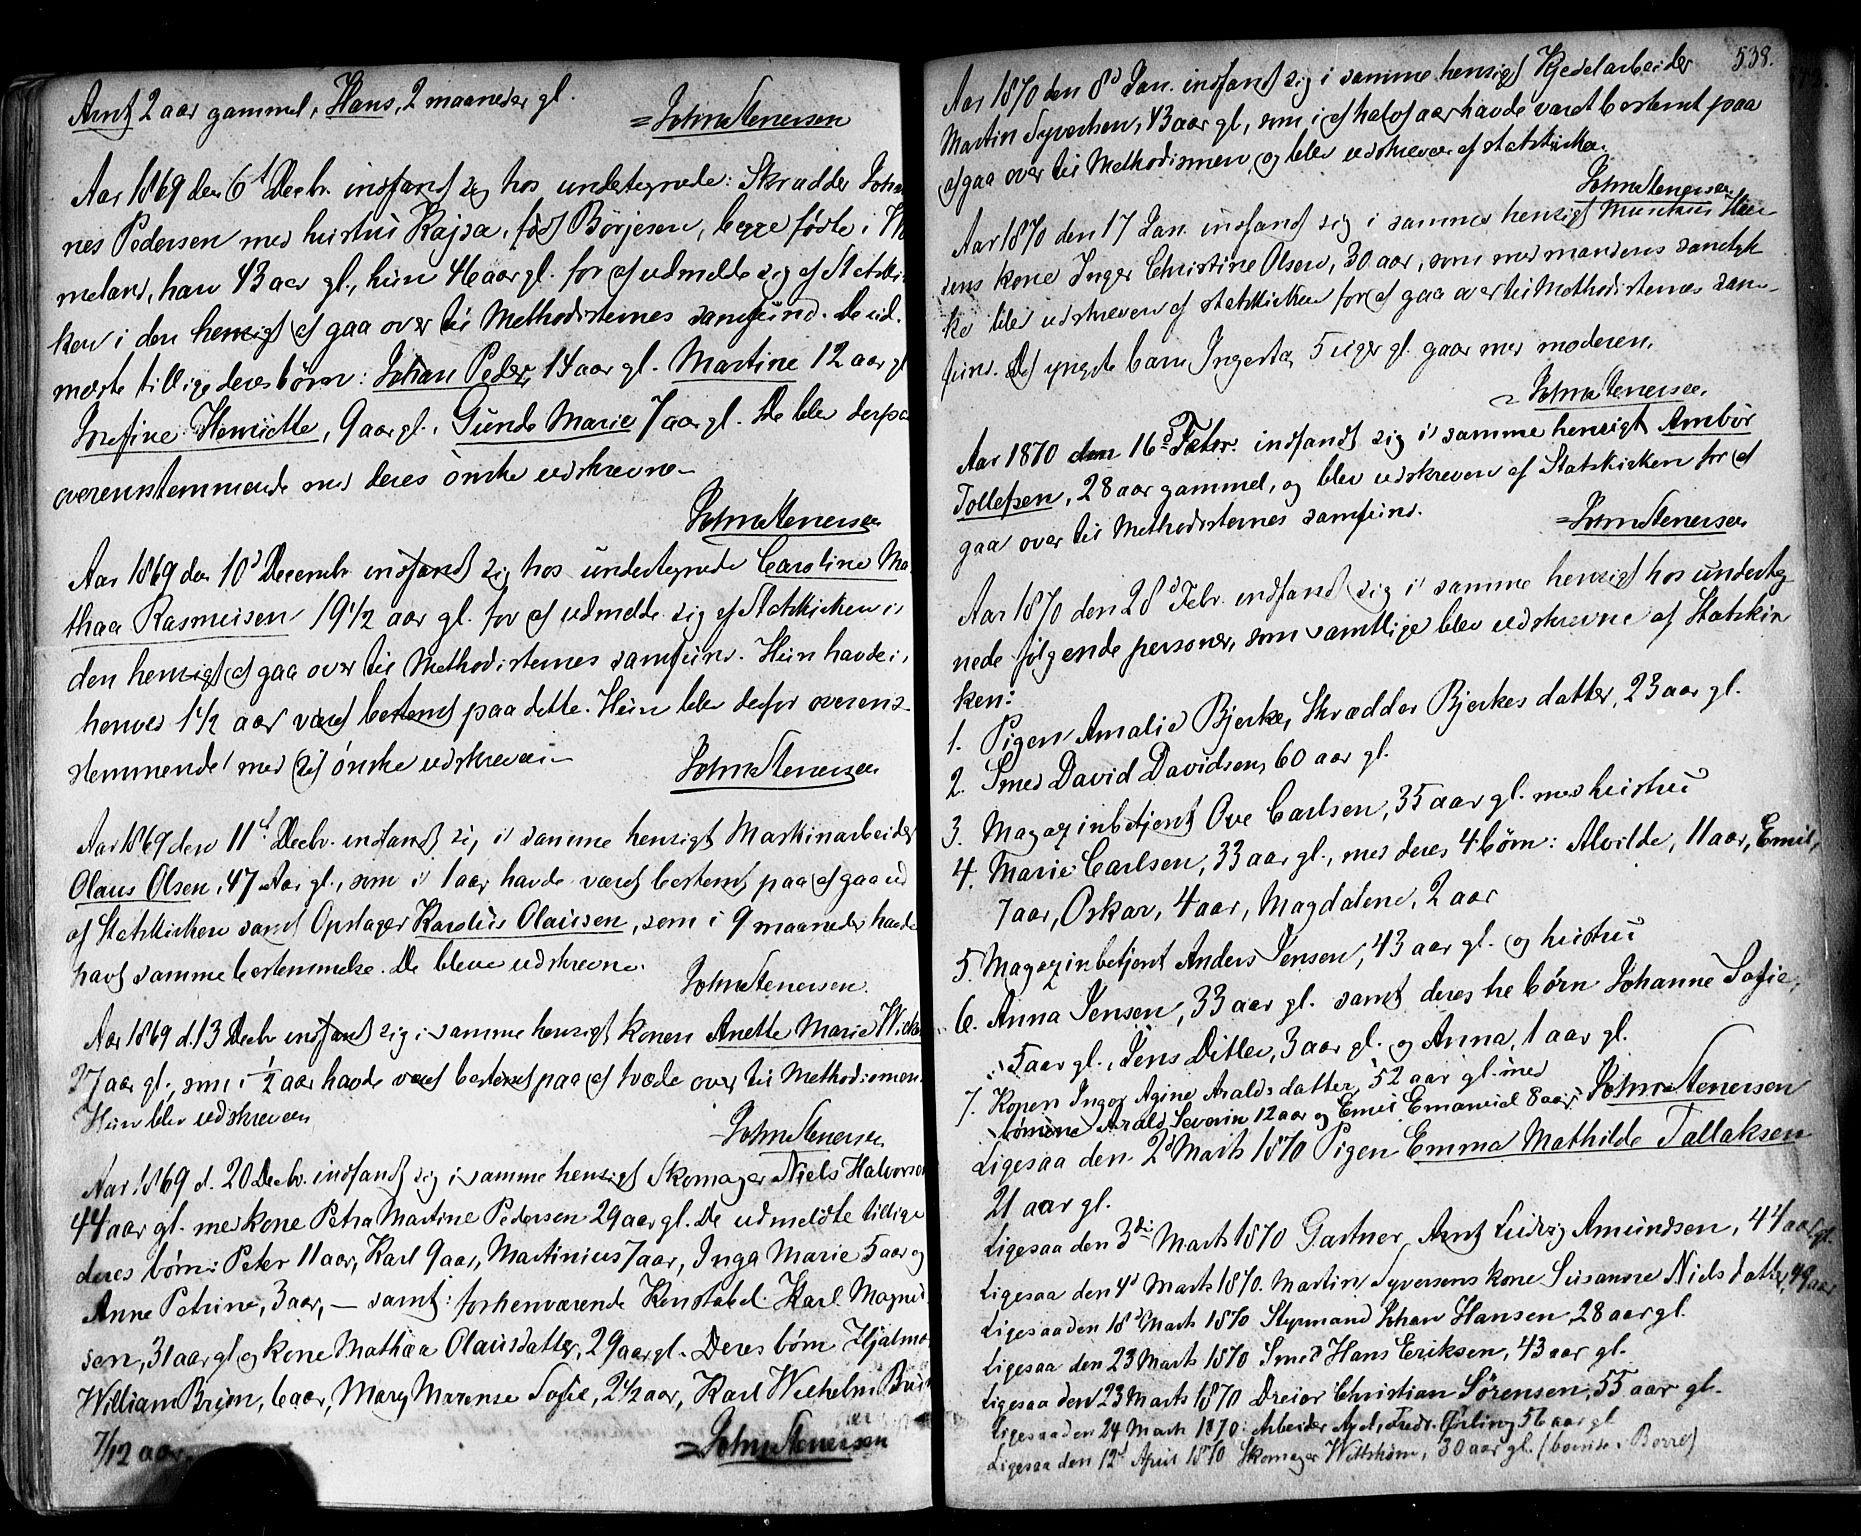 Arnt 2 aar gammel, Hans, 2 maaneder gl.
= John Stenersen
Aar 1869 den 6t Decbr. indfandt sig hos undertegnede: Skrædder Johan
nes Pedersen med hustru Kajsa, født Børjesen, begge fødte i
meland, han 43 aar gl., hun 46 aar gl. for at udmelde sig af Statskir
ken i den hensigt at gaa over til Methodisternes samfund. De ud-
meldte tillige deres børn: Johan Peder, 14 aar gl. Martine 12 aar gl
Josefine Henriette, 9 aar gl., Gunda Marie 7 aar gl. De blev derpaa
overensstemmende med deres ønske udskrevne.
John Stenersen
Aar 1869 den 10d Decembr indfandt sig hos undertegnede Caroline Ma
thea Rasmussen 19 1/2 aar gl. for at udmelde sig af Statskirken i
den hensigt at gaa over til Methodisternes samfund. Hun havde i
henved 1 1/2 aar været bestemt paa dette. Hun blev derfor overens-
stemmende med sit ønske udskreven.
John Stenersen
Aar 1869 den 11t Decbr. indfandt sig i samme hensigt Maskinarbeider
Olaus Olsen, 47 Aar gl., som i 1 aar havde været bestemt paa at gaa ud
af Statskirken samt Opslager Karolius Olaussen, som i 9 maaneder havde
havt samme bestemmelse. De bleve udskrevne.
John Stenersen.
Aar 1869 d. 13 Decbr indfandt sig i samme hensigt konen Anette Marie
27 aar gl., som i 1/2 aar havde været bestemt paa at træde over til Methodismen.
Hun blev udskreven
John Stenersen
Aar 1869 d. 20 Decbr. indfandt sig i samme hensigt Skomager Niels Halvorsen
44 aar gl. med kone Petra Martine Pedersen 29 aar gl. De udmeldte tillige
deres børn: Peter 11 aar, Karl 9 aar, Martinius 7 aar, Inga Marie 5 aar og
Anne Petrine, 3 aar, — samt: forhenværende Konstabel Karl Magnus
sen, 31 aar gl og kone Mathea Olausdatter, 29 aar gl. Deres børn Hjalmar
William Bruun, 6 aar, Mary Marense Sofie, 2 1/2 aar, Karl Wilhelm Bruun
7/12 aar.
= John Stenersen
538.
Aar 1870 den 8d Jan. indfandt sig i samme hensigt Kjedelarbeider
Martin Syvertsen, 43 aar gl., som i et halvt aar havde været bestemt paa
at gaa over til Methodismen, og blev udskreven af statskirken.
John Stenersen
Aar 1870 den 17 Jan. indfandt sig i samme hensigt
sens kone Inger Christine Olsen, 30 aar, som med mandens samtyk
ke blev udskreven af statskirken for at gaa over til Methodisternes sam-
fund. Det yngste barn Ingerta, 5 uger gl. gaar med moderen.
John Stenersen.
Aar 1870 den 16d Febr. indfandt sig i samme hensigt Ambør
Tollefsen, 28 aar gammel, og blev udskreven af Statskirken for at
gaa over til Methodisternes samfund.
= John Stenersen
Aar 1870 den 28d Febr. indfandt sig i samme hensigt hos underteg
nede følgende personer, som samtlige blev udskrevne af Statskir
ken:
1. Pigen Amalie Bjerke, Skrædder Bjerkes datter, 23 aar gl.
2. Smed David Davidsen, 60 aar gl.
3. Magazinbetjent Ove Carlsen, 35 aar gl. med hustru
4. Marie Carlsen, 33 aar gl., med deres 4 børn: Alvilde, 11 aar, Emil,
7 aar, Oskar, 4 aar, Magdalene, 2 aar
5. Magazinbetjent Anders Jensen, 43 aar gl. og hustru
6. Anna Jensen, 33 aar gl. samt deres tre børn Johanne Sofie,
5 aar gl., Jens Ditlev, 3 aar gl. og Anna, 1 aar gl.
7. Konen Inger Agine Araldsdatter, 52 aar gl. med
børnene Arald Severin 12 aar og Emil Emanuel 8 aar. John Stenersen
Ligesaa den 2d Marts 1870 Pigen Emma Mathilde Tallaksen
21 aar gl.
Ligesaa den 3die Marts 1870 Gartner Arnt Ludvig Amundsen, 44 aar gl.
Ligesaa den 4d Marts 1870. Martin Syversens kone Susanne Nielsdatter, 49 aar
Ligesaa den 18d Marts 1870 Styrmand Johan Hansen 28 aar gl.
Ligesaa den 23 Marts 1870 Smed Hans Eriksen, 43 aar gl.
Ligesaa den 23 Marts 1870 Dreier Christian Sørensen, 55 aar gl.
Ligesaa den 24 Marts 1870: Arbeider Axel, Fredr. 56 aar gl
Ligesaa den 12t April 1870 Skomager 30 aar gl. ( Borre)